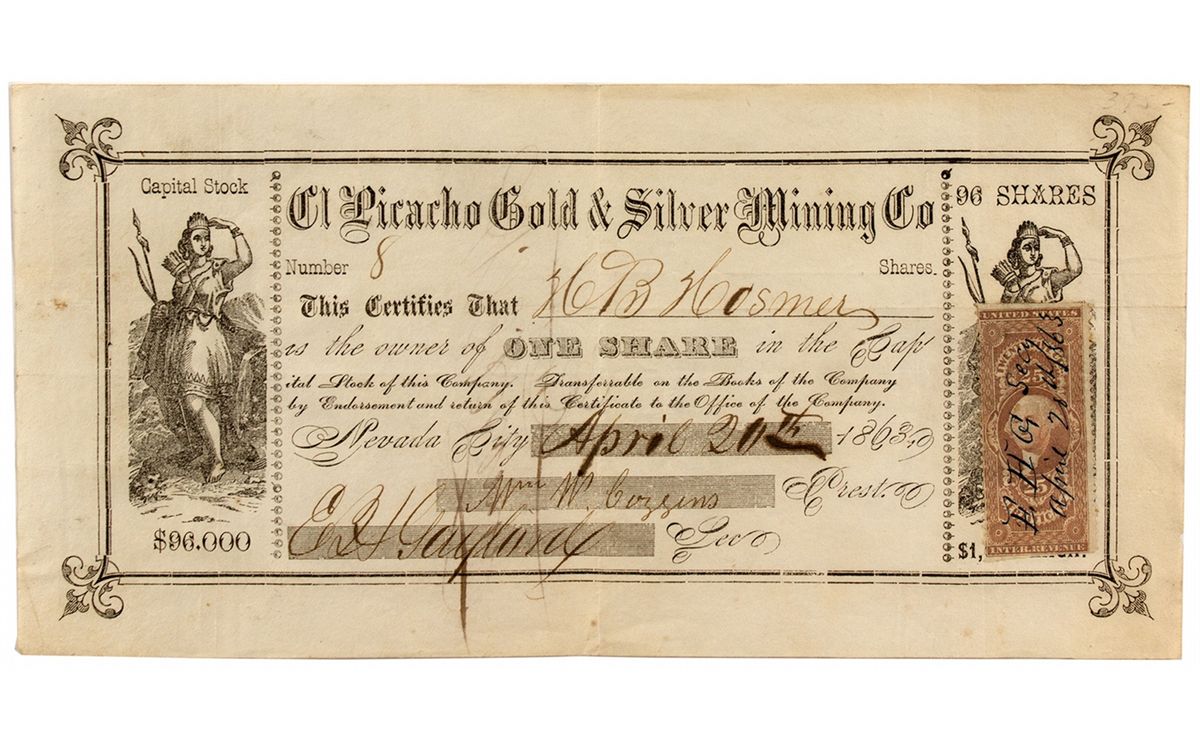 395-
Capital Stock
El Picacho Gold & Silver Mining Co
96 SHARES
Number 8 Shares.
This Certifies That H B Hosmer
is the owner of ONE SHARE in the Cap
ital Stock of this Company. Transferrable on the Books of the Company
by Endorsement and return of this Certificate to the Office of the Company.
Nevada City April 20th 1863.
Wm W Coggins Prest.
E B H Gaylord Sec
$96.000
UNITED STATES
April 28th/63
INTER. REVENUE
$1,